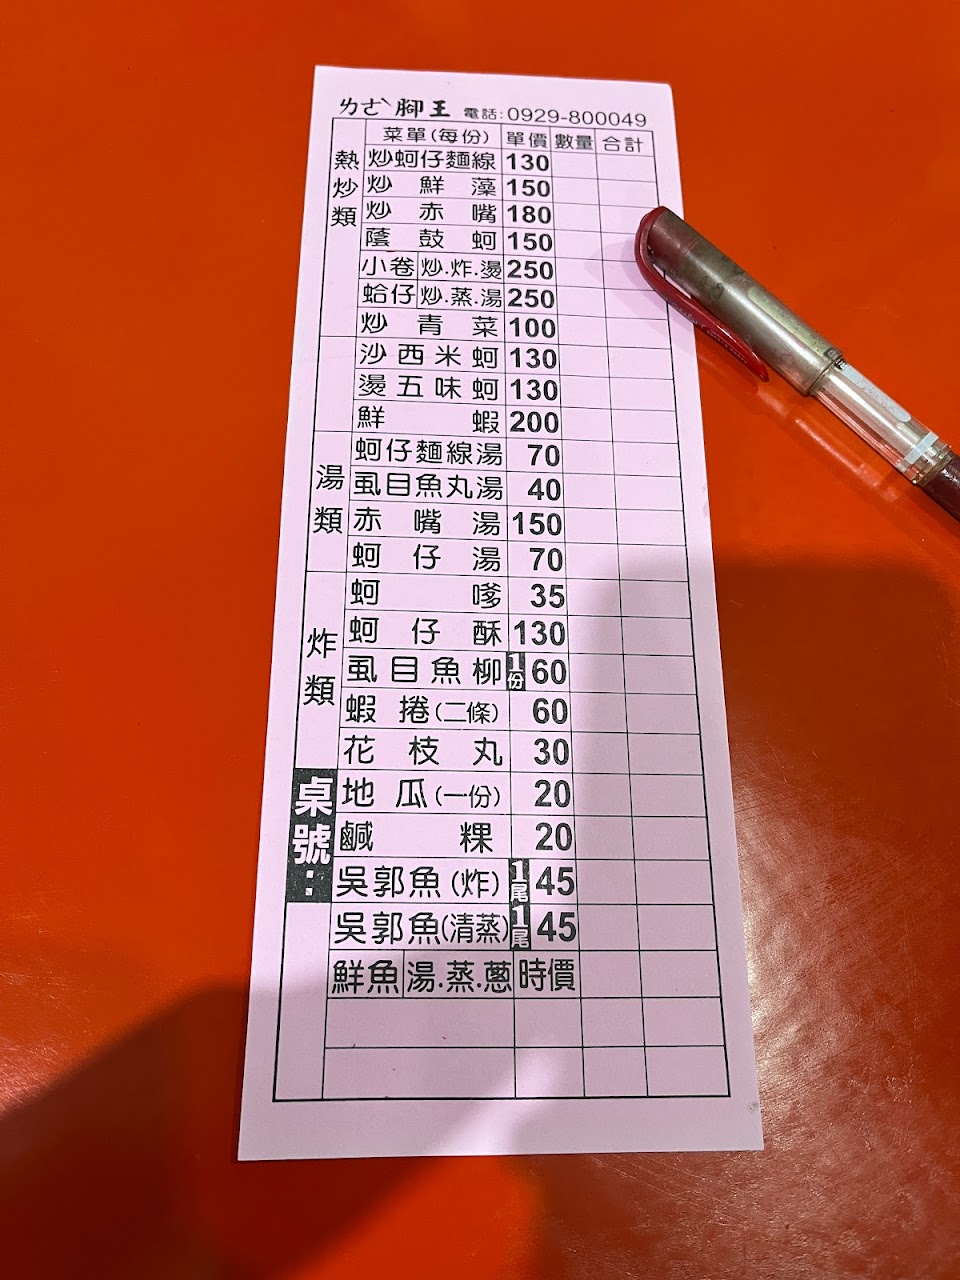 ㄌㄜˋ腳王 電話:0929-800049
菜單(每份) 單價 數量 合計
熱炒類
炒蚵仔麵線 130
炒鮮藻 150
炒赤嘴 180
蔭鼓蚵 150
小卷 炒.炸.燙 250
蛤仔 炒.蒸.湯 250
炒青菜 100
沙西米蚵 130
燙五味蚵 130
鮮蝦 200
湯類
蚵仔麵線湯 70
虱目魚丸湯 40
赤嘴湯 150
蚵仔湯 70
炸類
蚵嗲 35
蚵仔酥 130
虱目魚柳 1份 60
蝦捲(二條) 60
花枝丸 30
桌號:
地瓜(一份) 20
鹹粿 20
吳郭魚(炸) 1尾 45
吳郭魚(清蒸) 1尾 45
鮮魚 湯.蒸.蔥 時價